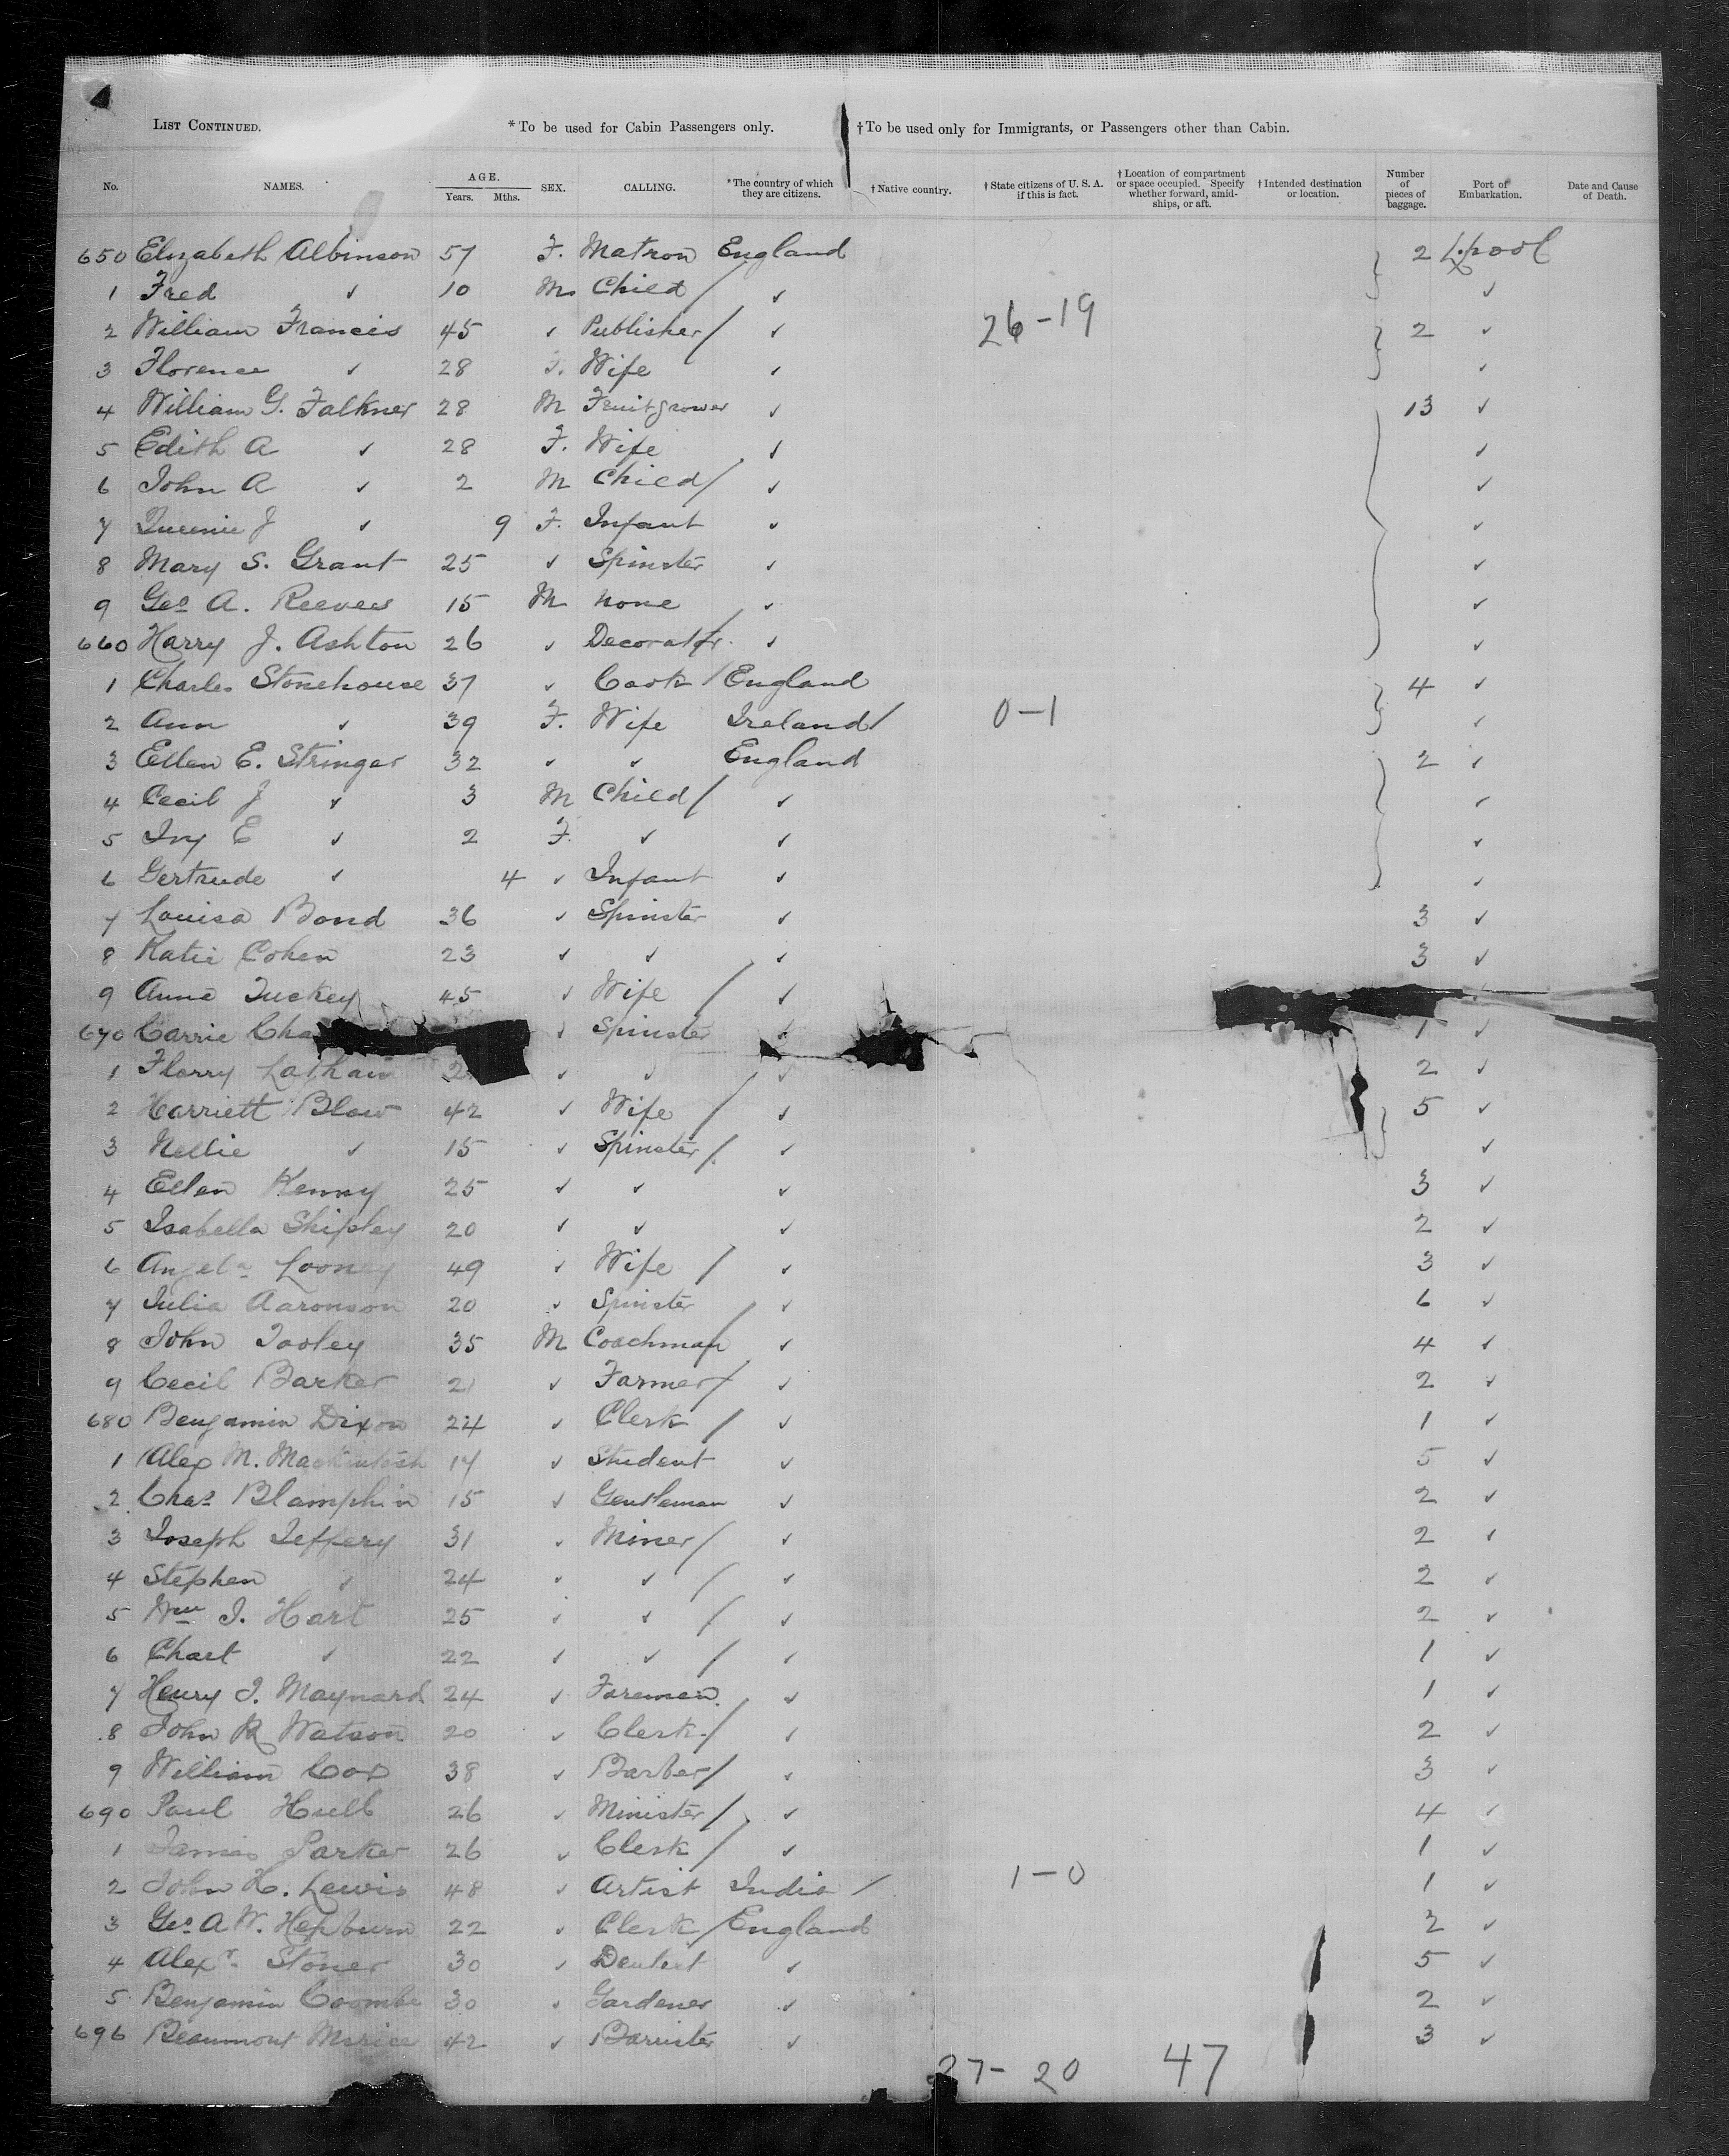 LIST CONTINUED. * To be used for Cabin Passengers only. † To be used only for Immigrants, or Passengers other than Cabin.
No. NAMES. AGE. Years. Mths. SEX. CALLING. * The country of which they are citizens. † Native country. † State citizens of U. S. A. if this is fact. † Location of compartment or space occupied. Specify whether forward, amid-ships, or aft. † Intended destination or location. Number of pieces of baggage. Port of Embarkation. Date and Cause of Death.
650 Elizabeth Albinson 57 F. Matron England 2 L.pool
1 Fred ✓ 10 M Child / ✓ ✓
2 William Francis 45 ✓ Publisher / ✓ 26-19 2 ✓
3 Florence ✓ 28 F. Wife ✓ ✓
4 William G. Falkner 28 M Fruitgrower ✓ 13 ✓
5 Edith A ✓ 28 F. Wife ✓ ✓
6 John A ✓ 2 M Child / ✓ ✓
7 Queenie J ✓ 9 F. Infant ✓ ✓
8 Mary S. Grant 25 ✓ Spinster ✓ ✓
9 Geo A. Reeves 15 M none ✓ ✓
660 Harry J. Ashton 26 ✓ Decorator ✓ ✓
1 Charles Stonehouse 37 ✓ Cook / England 4 ✓
2 Ann ✓ 39 F. Wife Ireland / 0-1 ✓
3 Ellen E. Stringer 32 ✓ ✓ England 2 ✓
4 Cecil J ✓ 3 M Child / ✓ ✓
5 Ivy E ✓ 2 F. ✓ ✓ ✓
6 Gertrude ✓ 4 ✓ Infant ✓ ✓
7 Louisa Bond 36 ✓ Spinster ✓ 3 ✓
8 Katie Cohen 23 ✓ ✓ ✓ 3 ✓
9 Anne Tuckey 45 ✓ Wife / ✓
670 Carrie ✓ Spinster ✓ 1 ✓
1 Florry Latham ✓ ✓ / ✓ 2 ✓
2 Harriett Blow 42 ✓ Wife / ✓ 5 ✓
3 Nellie ✓ 15 ✓ Spinster / ✓ ✓
4 Ellen Kenny 25 ✓ ✓ ✓ 3 ✓
5 Isabella Shipley 20 ✓ ✓ ✓ 2 ✓
6 Angela Looney 49 ✓ Wife / ✓ 3 ✓
7 Julia Aaronson 20 ✓ Spinster ✓ 6 ✓
8 John Tooley 35 M Coachman / ✓ 4 ✓
9 Cecil Barker 21 ✓ Farmer / ✓ 2 ✓
680 Benjamin Dixon 24 ✓ Clerk / ✓ 1 ✓
1 Alex M. Mackintosh 14 ✓ Student ✓ 5 ✓
2 Chas Blamphin 15 ✓ Gentleman ✓ 2 ✓
3 Joseph Jeffery 31 ✓ Miner / ✓ 2 ✓
4 Stephen ✓ 24 ✓ ✓ / ✓ 2 ✓
5 Wm J. Hart 25 ✓ ✓ / ✓ 2 ✓
6 Chart ✓ 22 ✓ ✓ / ✓ 1 ✓
7 Henry J. Maynard 24 ✓ Foreman ✓ 1 ✓
8 John R Watson 20 ✓ Clerk / ✓ 2 ✓
9 William Cox 38 ✓ Barber / ✓ 3 ✓
690 Paul Hull 26 ✓ Minister / ✓ 4 ✓
1 James Parker 26 ✓ Clerk / ✓ 1 ✓
2 John H. Lewis 48 ✓ Artist India / 1-0 1 ✓
3 Geo A W. Hepburn 22 ✓ Clerk / England 2 ✓
4 Alexr Stoner 30 ✓ Dentist ✓ 5 ✓
5 Benjamin Coombe 30 ✓ Gardener ✓ 2 ✓
696 Beaumont Morice 42 ✓ Barrister ✓ 3 ✓
27-20 47